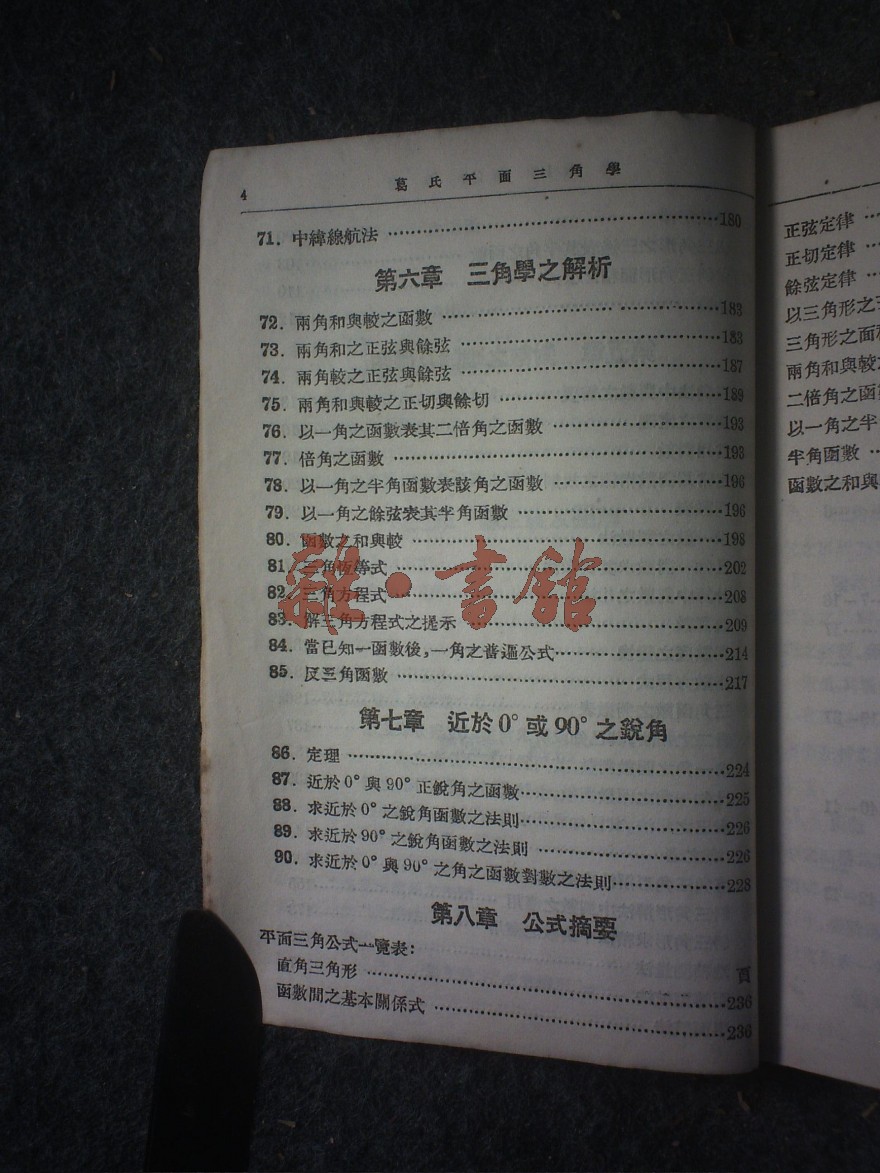 4
葛氏平面三角學
71. 中緯線航法 180
第六章 三角學之解析
72. 兩角和與較之函數 183
73. 兩角和之正弦與餘弦 183
74. 兩角較之正弦與餘弦 187
75. 兩角和與較之正切與餘切 189
76. 以一角之函數表其二倍角之函數 193
77. 倍角之函數 193
78. 以一角之半角函數表該角之函數 196
79. 以一角之餘弦表其半角函數 196
80. 函數之和與較 198
81. 三角恆等式 202
82. 三角方程式 208
83. 解三角方程式之提示 209
84. 當已知一函數後,一角之普遍公式 214
85. 反三角函數 217
第七章 近於0°或90°之銳角
86. 定理 224
87. 近於0°與90°正銳角之函數 225
88. 求近於0°之銳角函數之法則 226
89. 求近於90°之銳角函數之法則 226
90. 求近於0°與90°之角之函數對數之法則 228
第八章 公式摘要
平面三角公式一覽表:
頁
直角三角形 236
函數間之基本關係式 236
正弦定律
正切定律
餘弦定律
以三角形之
三角形之面
兩角和與較
二倍角之函
以一角之半
半角函數
函數之和與
雜·書館